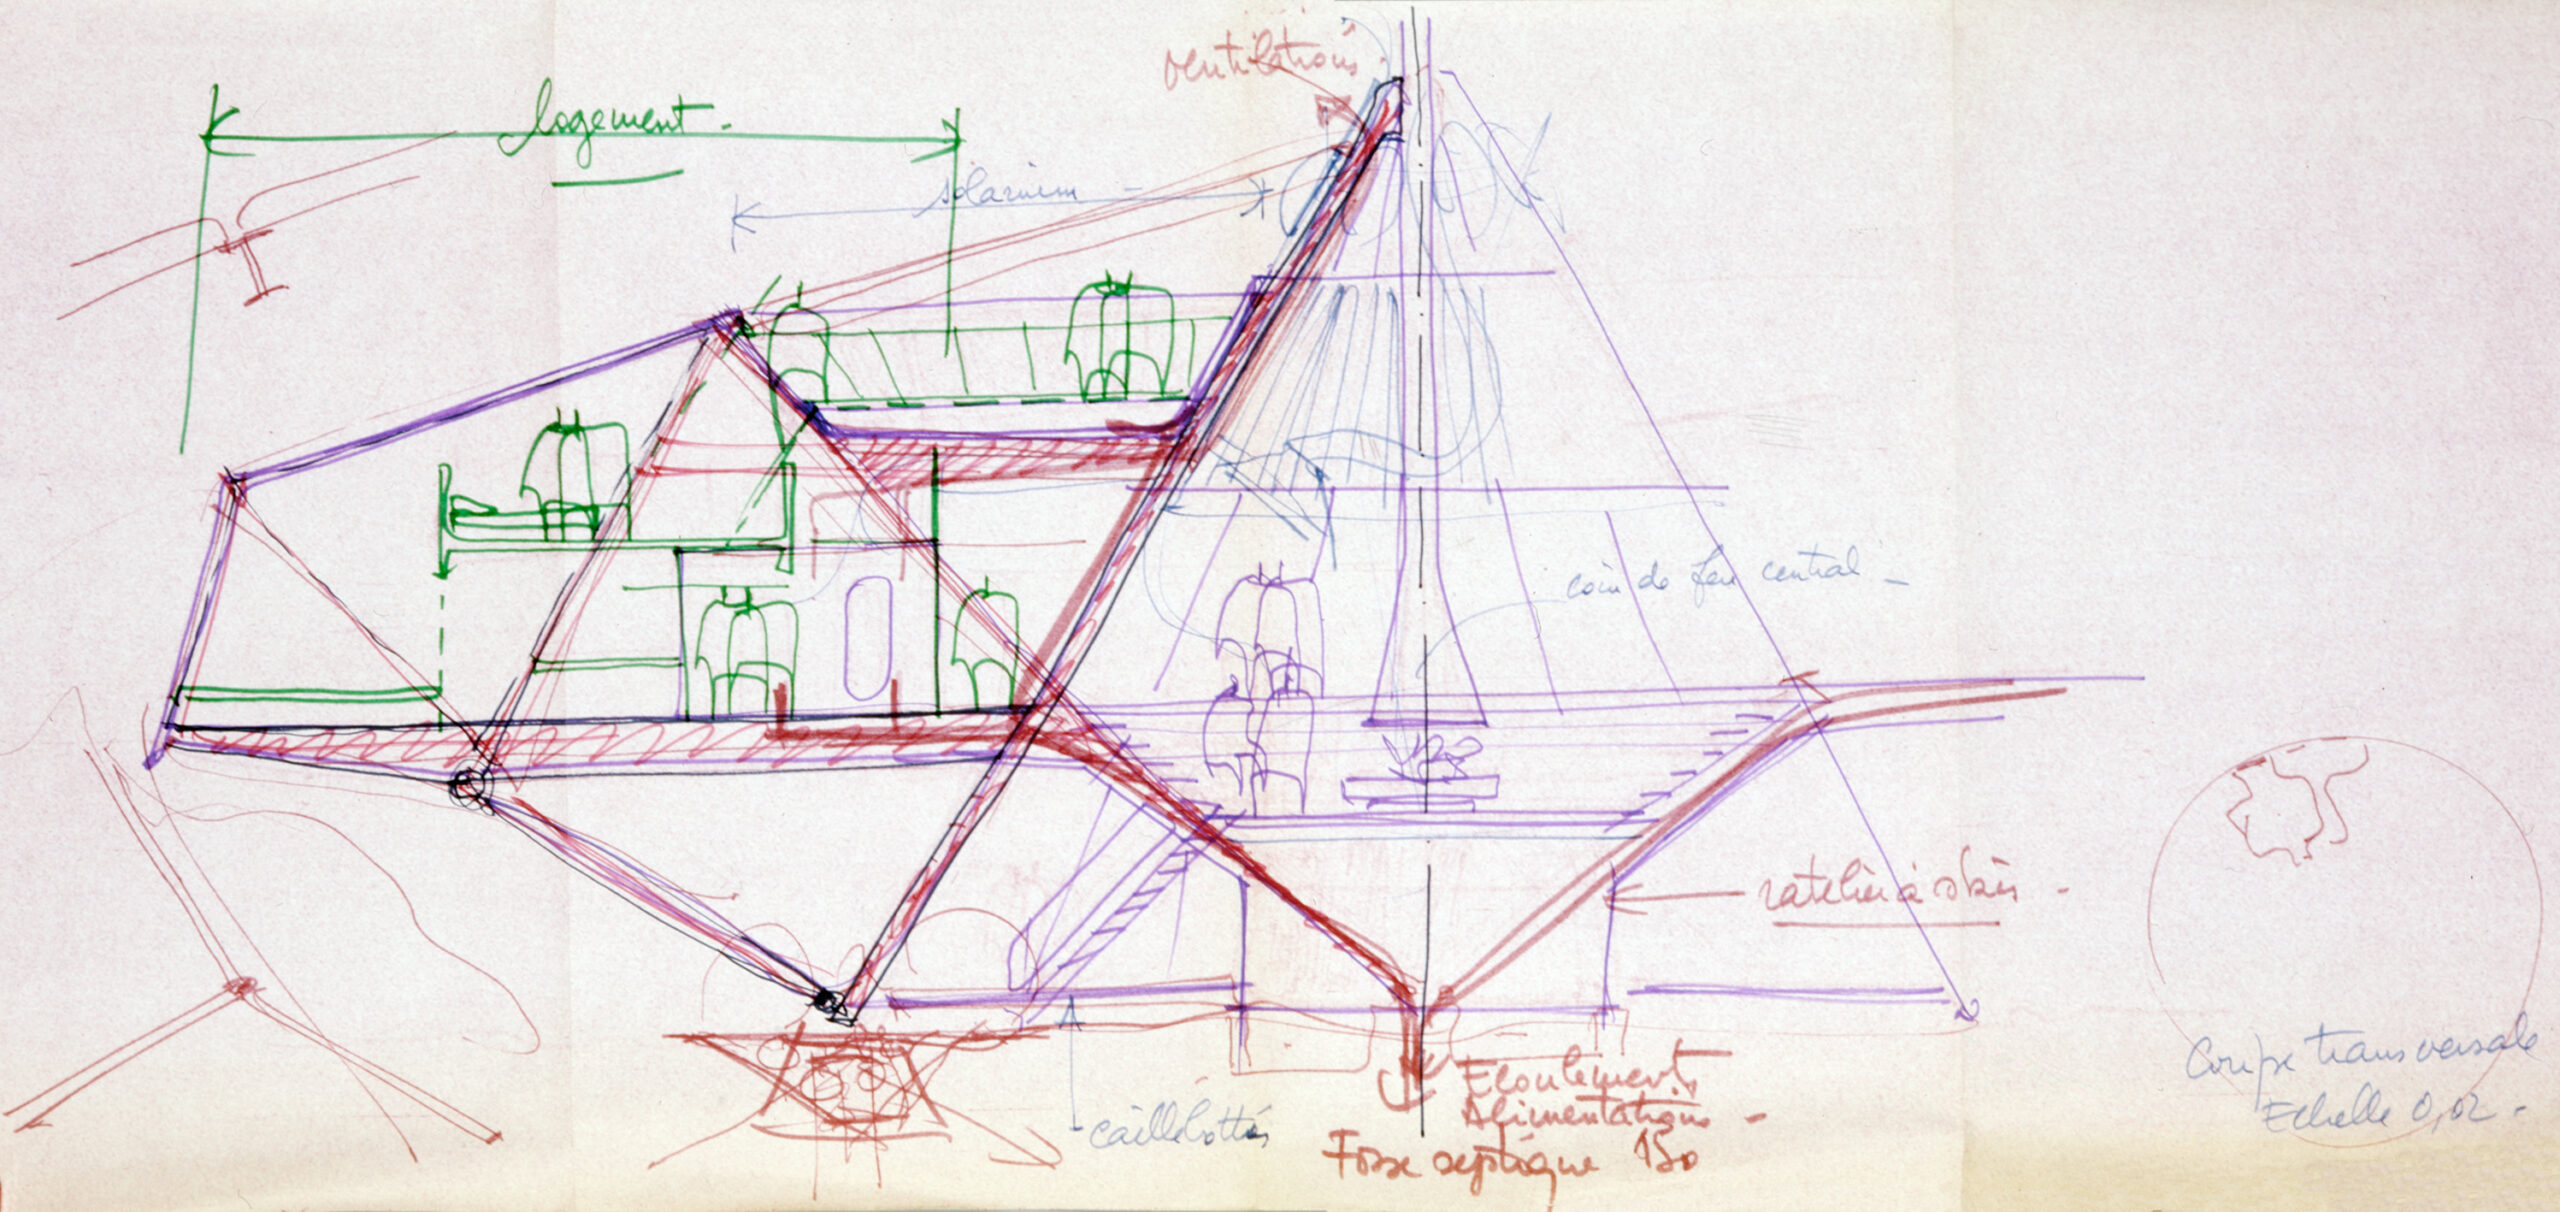 ventilations.
logement -
solarium -
coin de feu central -
ratelier à skis -
Ecoulements
Alimentations -
Fosse septique 150
caillebottis
Coupe transversale
Echelle 0,02 -